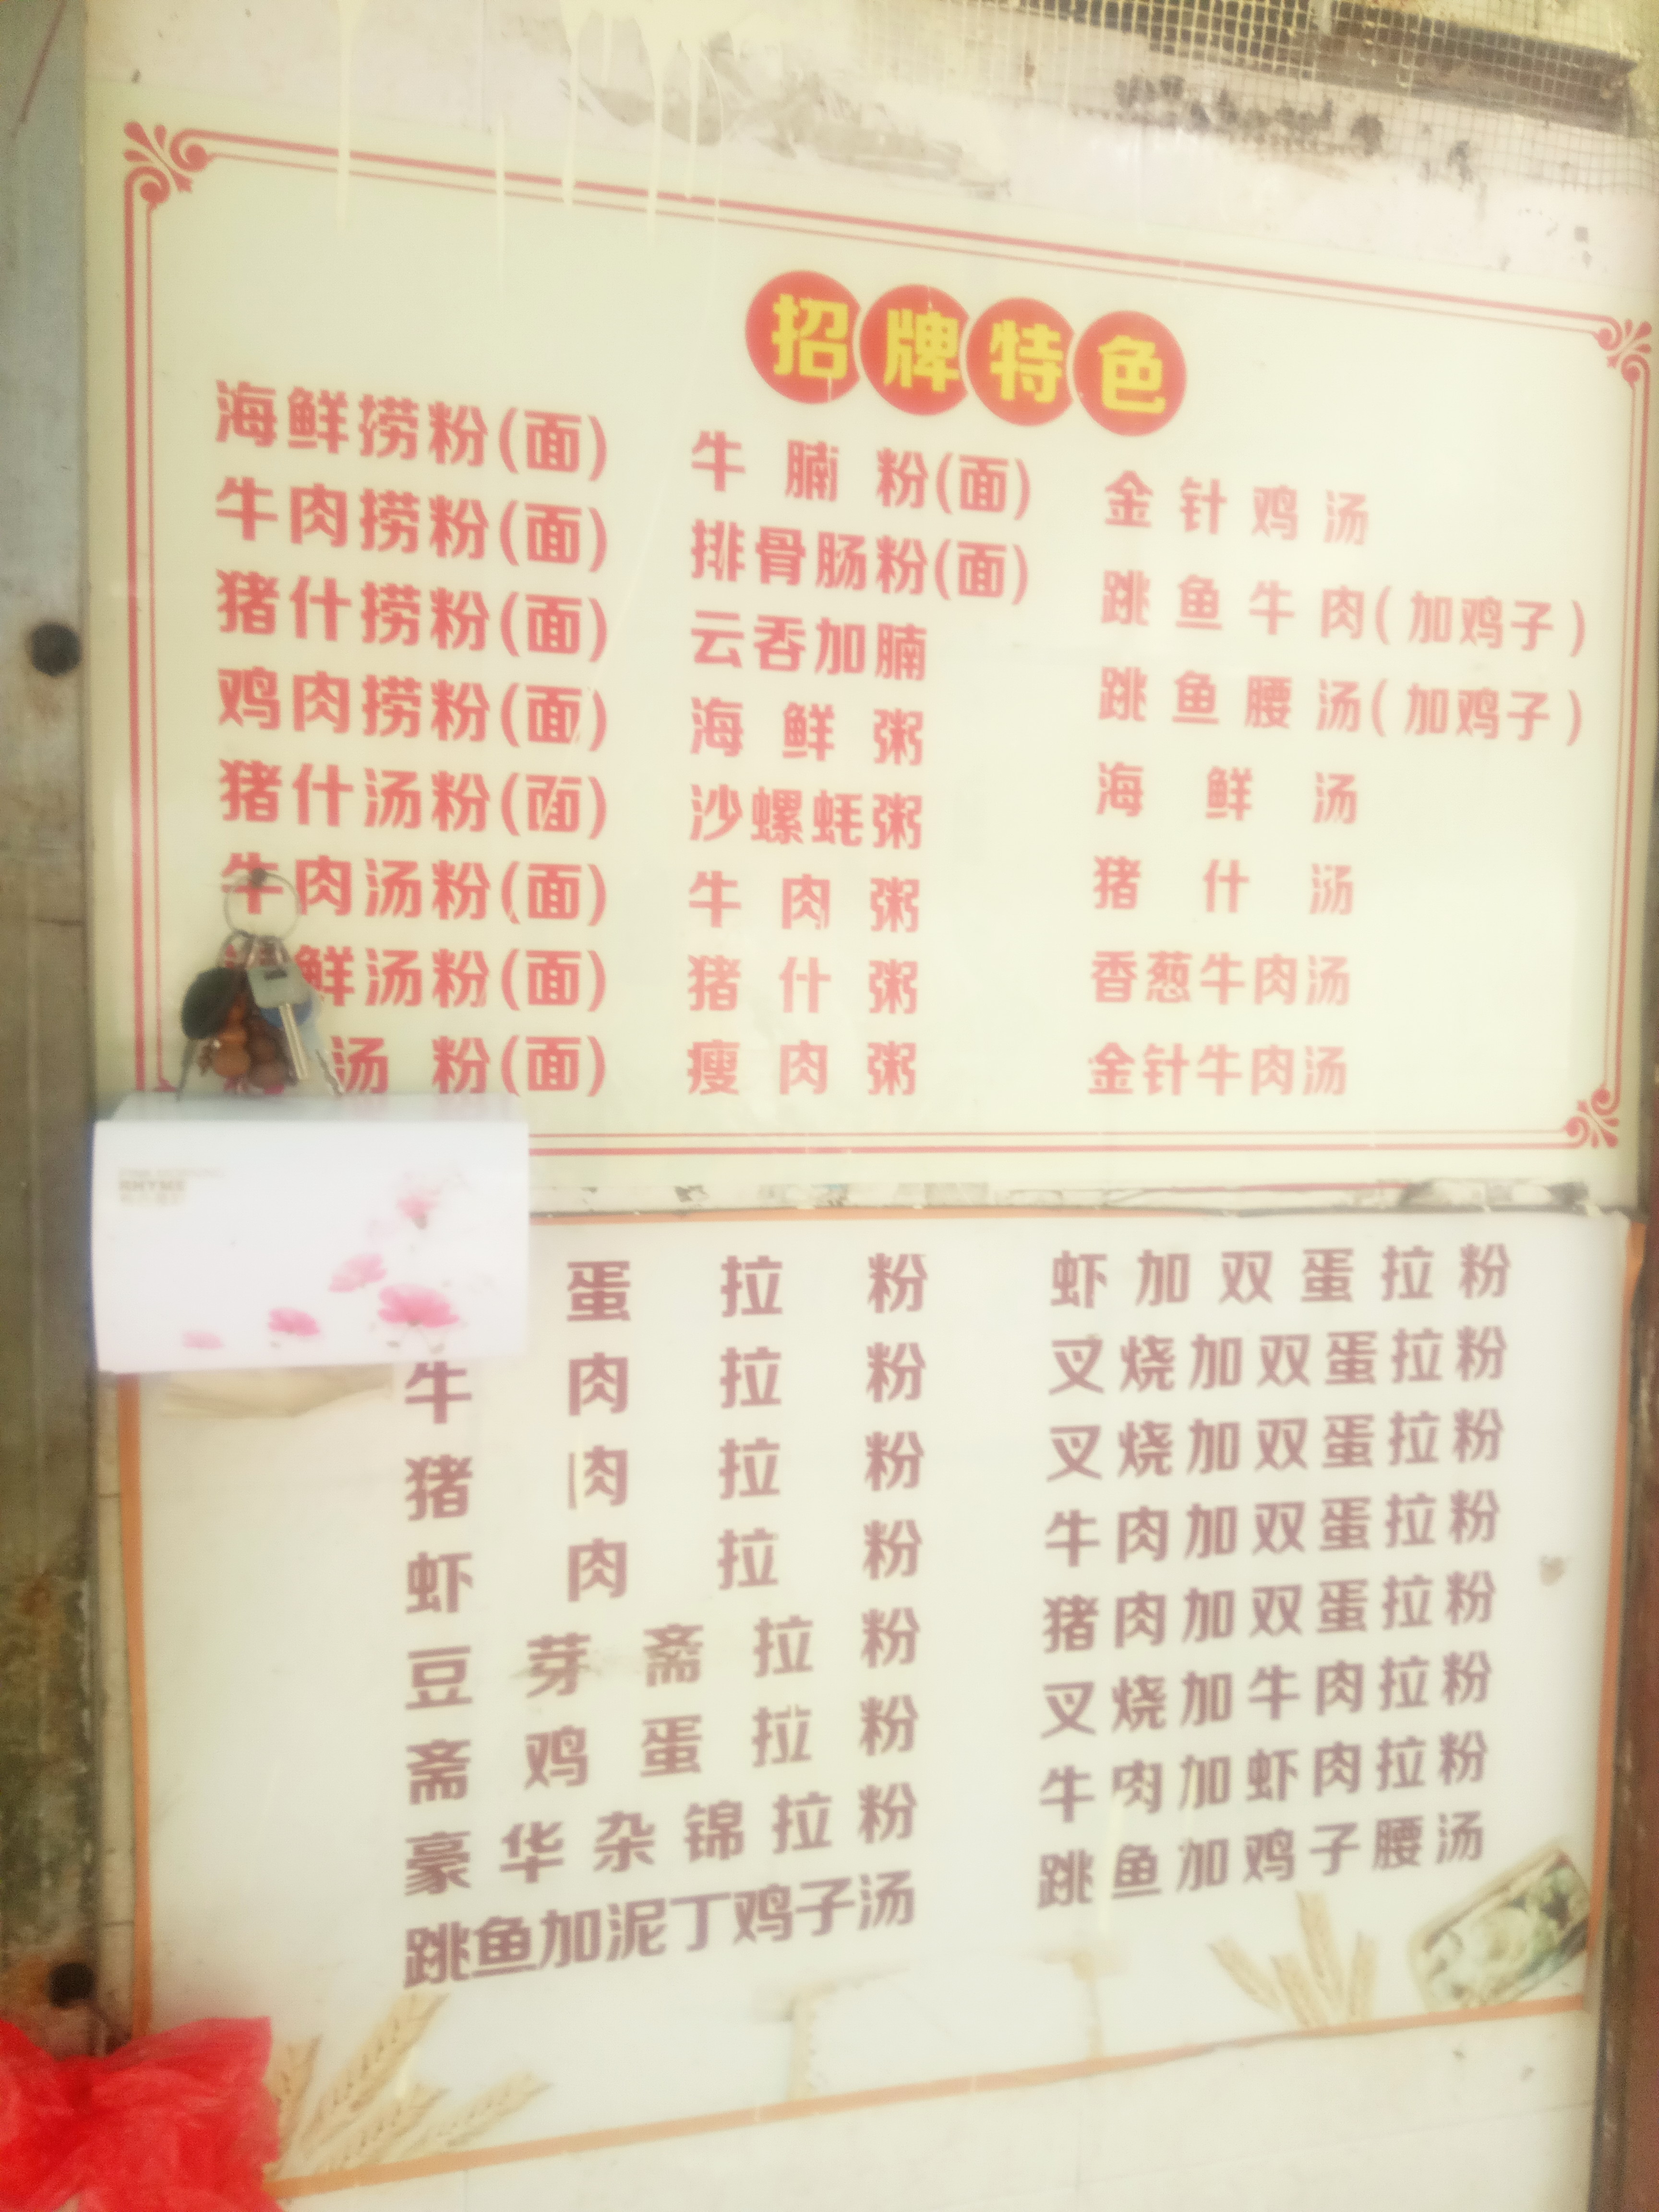 招牌特色
海鲜捞粉(面)
牛肉捞粉(面)
猪什捞粉(面)
鸡肉捞粉(面)
猪什汤粉(面)
牛肉汤粉(面)
鲜汤粉(面)
汤粉(面)
牛腩粉(面)
排骨肠粉(面)
云吞加腩
海鲜粥
沙螺蚝粥
牛肉粥
猪什粥
瘦肉粥
金针鸡汤
跳鱼牛肉(加鸡子)
跳鱼腰汤(加鸡子)
海鲜汤
猪什汤
香葱牛肉汤
金针牛肉汤
RHYME
蛋拉粉
牛肉拉粉
猪肉拉粉
虾肉拉粉
豆芽斋拉粉
斋鸡蛋拉粉
豪华杂锦拉粉
跳鱼加泥丁鸡子汤
虾加双蛋拉粉
叉烧加双蛋拉粉
叉烧加双蛋拉粉
牛肉加双蛋拉粉
猪肉加双蛋拉粉
叉烧加牛肉拉粉
牛肉加虾肉拉粉
跳鱼加鸡子腰汤